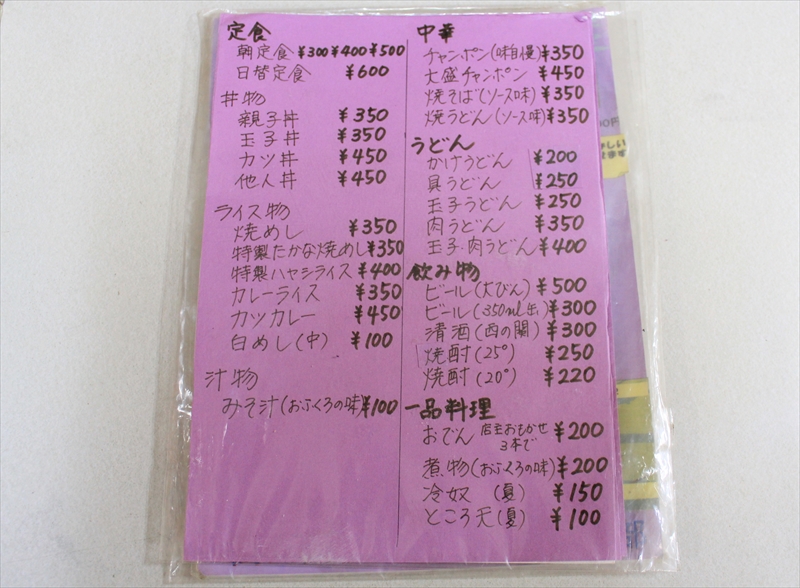 定食
朝定食 ¥300 ¥400 ¥500
日替定食 ¥600
丼物
親子丼 ¥350
玉子丼 ¥350
カツ丼 ¥450
他人丼 ¥450
ライス物
焼めし ¥350
特製たかな焼めし ¥350
特製ハヤシライス ¥400
カレーライス ¥350
カツカレー ¥450
白めし(中) ¥100
汁物
みそ汁(おふくろの味) ¥100
中華
チャンポン(味自慢) ¥350
大盛チャンポン ¥450
焼そば(ソース味) ¥350
焼うどん(ソース味) ¥350
うどん
かけうどん ¥200
具うどん ¥250
玉子うどん ¥250
肉うどん ¥350
玉子・肉うどん ¥400
飲み物
ビール(大びん) ¥500
ビール(350ml缶) ¥300
清酒(西の関) ¥300
焼酎(25°) ¥250
焼酎(20°) ¥220
一品料理
おでん 店主おもかせ 3本で ¥200
煮物(おふくろの味) ¥200
冷奴(夏) ¥150
ところ天(夏) ¥100